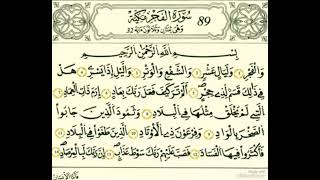 سُورَةُ الفَجْرِ مَكِّيَّة 89
وَهِيَ ثِنْتَانِ وَثَلَاثُونَ آيَة 32
بِسْمِ اللَّهِ الرَّحْمَٰنِ الرَّحِيمِ
وَالْفَجْرِ ۝ وَلَيَالٍ عَشْرٍ ۝ وَالشَّفْعِ وَالْوَتْرِ ۝ وَالَّيْلِ إِذَا يَسْرِ ۝ هَلْ
فِي ذَٰلِكَ قَسَمٌ لِّذِي حِجْرٍ ۝ أَلَمْ تَرَ كَيْفَ فَعَلَ رَبُّكَ بِعَادٍ ۝ إِرَمَ ذَاتِ الْعِمَادِ ۝
الَّتِي لَمْ يُخْلَقْ مِثْلُهَا فِي الْبِلَادِ ۝ وَثَمُودَ الَّذِينَ جَابُوا
الصَّخْرَ بِالْوَادِ ۝ وَفِرْعَوْنَ ذِي الْأَوْتَادِ ۝ الَّذِينَ طَغَوْا فِي الْبِلَادِ ۝
فَأَكْثَرُوا فِيهَا الْفَسَادَ ۝ فَصَبَّ عَلَيْهِمْ رَبُّكَ سَوْطَ عَذَابٍ ۝ إِنَّ رَبَّكَ لَبِالْمِرْصَادِ ۝
فَأَمَّا الْإِنسَانُ